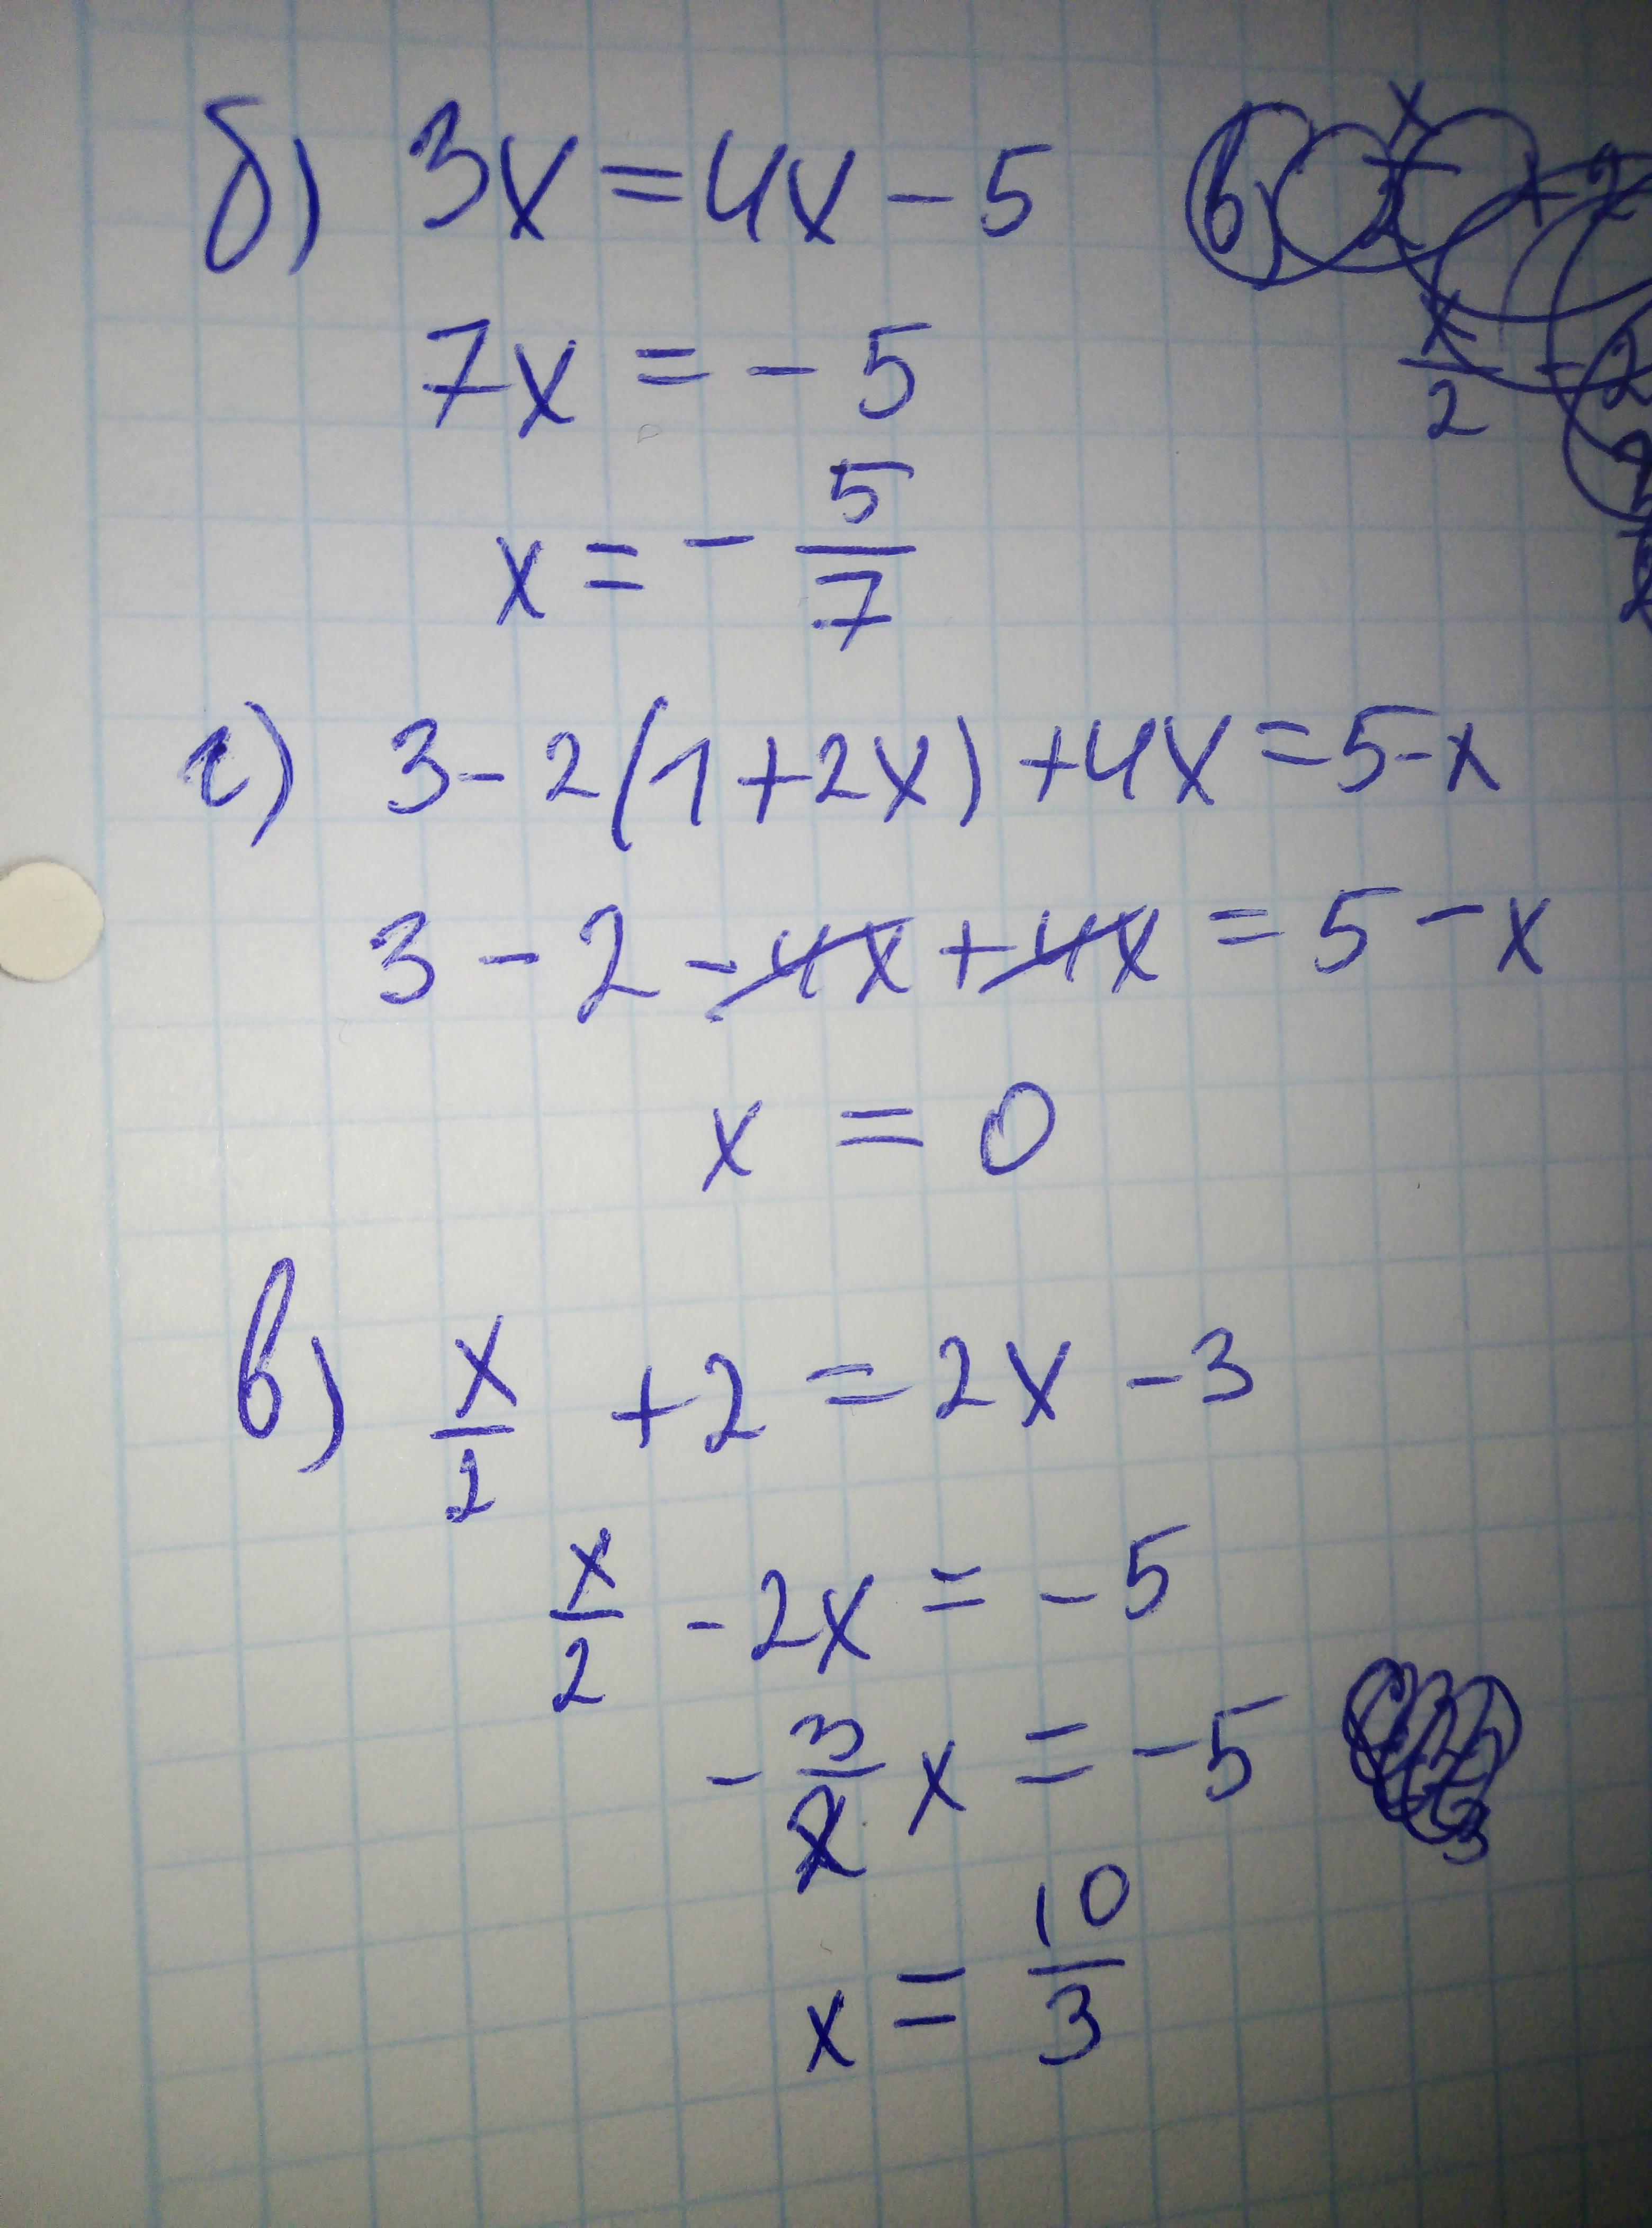 б) 3x = 4x - 5
7x = - 5
x = - 5/7
г) 3 - 2(1 + 2x) + 4x = 5 - x
3 - 2 - 4x + 4x = 5 - x
x = 0
в) x/2 + 2 = 2x - 3
x/2 - 2x = - 5
- 3/2 x = - 5
x = 10/3